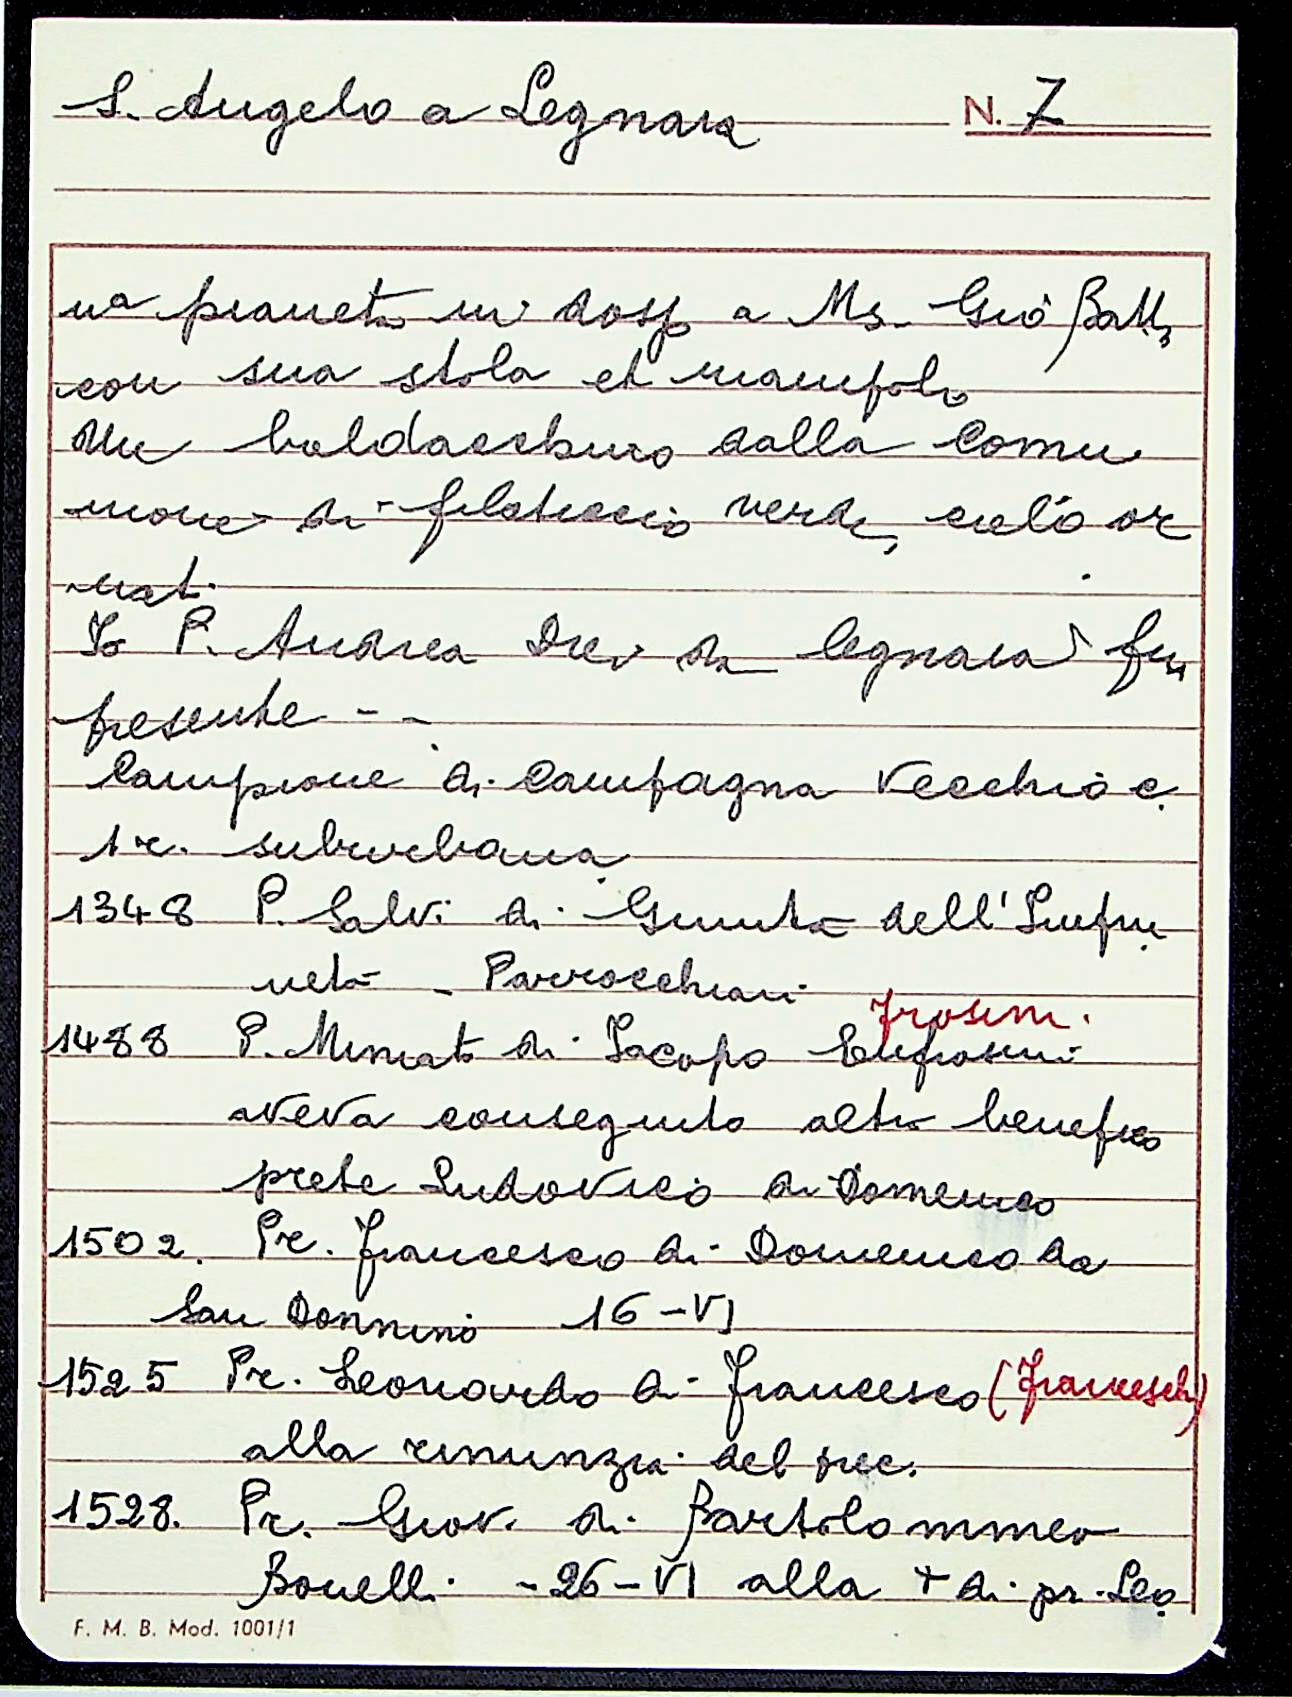 S. Angelo a Legnaia N. 7
na pianeta in dosso a Ms. Gio Batt,
con sua stola et manipolo
Un baldacchino dalla Comu
nione di filaticcio verde, cielo or
nat.
Io P. Andrea Pievano da Legnaia fui
presente - -
Campione di Campagna Vecchio c.
1 r. suburbana
1348 P. Salvi di Giunta dell'Impru
neta - Parrocchiani
frosini.
1488 P. Miniato di Jacopo Eufrosini
aveva conseguito altro beneficio
prete Ludovico di Domenico
1502. Pr. Francesco di Domenico da
San Donnino 16-VI
1525 Pr. Leonardo di Francesco (Franceschi)
alla rinunzia del prec.
1528. Pr. Giov. di Bartolommeo
Bonelli - 26-VI alla + di pr. Leo
F. M. B. Mod. 1001/1